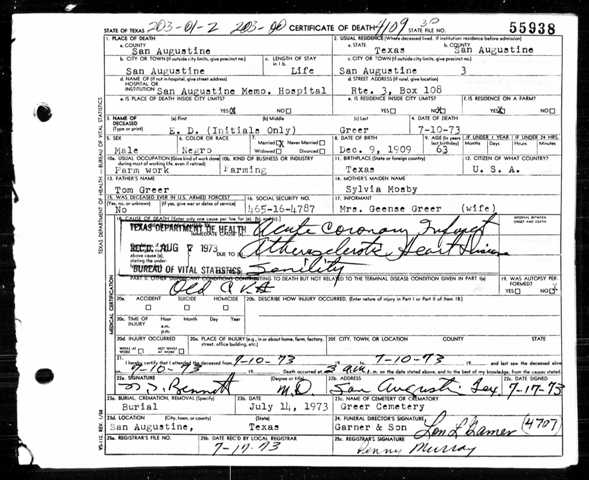 203-01-2 203-90
STATE OF TEXAS CERTIFICATE OF DEATH 4109 STATE FILE NO. 55938
1. PLACE OF DEATH 2. USUAL RESIDENCE (Where deceased lived. If institution: residence before admission)
a. COUNTY San Augustine a. STATE Texas b. COUNTY San Augustine
b. CITY OR TOWN (If outside city limits, give precinct no.) San Augustine c. LENGTH OF STAY in 1b. Life c. CITY OR TOWN (If outside city limits, give precinct no.) San Augustine 3
d. NAME OF (If not in hospital, give street address) HOSPITAL OR INSTITUTION San Augustine Memo. Hospital d. STREET ADDRESS (If rural, give location) Rte. 3, Box 108
e. IS PLACE OF DEATH INSIDE CITY LIMITS? YES NO e. IS RESIDENCE INSIDE CITY LIMITS? YES NO f. IS RESIDENCE ON A FARM? YES NO
3. NAME OF DECEASED (Type or print) (a) First (b) Middle (c) Last 4. DATE OF DEATH
E. D. (Initials Only) Greer 7-10-73
5. SEX Male 6. COLOR OR RACE Negro 7. Married Never Married Widowed Divorced 8. DATE OF BIRTH Dec. 9, 1909 9. AGE (In years last birthday) 63 IF UNDER 1 YEAR Months Days IF UNDER 24 HRS. Hours Minutes
10a. USUAL OCCUPATION (Give kind of work done during most of working life, even if retired) Farm work 10b. KIND OF BUSINESS OR INDUSTRY Farming 11. BIRTHPLACE (State or foreign country) Texas 12. CITIZEN OF WHAT COUNTRY? U. S. A.
13. FATHER'S NAME Tom Greer 14. MOTHER'S MAIDEN NAME Sylvia Mosby
15. WAS DECEASED EVER IN U.S. ARMED FORCES? (Yes, no, or unknown) (If yes, give war or dates of service) No 16. SOCIAL SECURITY NO. 465-16-4787 17. INFORMANT Mrs. Geense Greer (wife)
18. CAUSE OF DEATH (Enter only one cause per line for (a), (b), and (c).) INTERVAL BETWEEN ONSET AND DEATH
TEXAS DEPARTMENT OF HEALTH Acute Coronary Infarct
REC'D. AUG 7 1973 DUE TO Atherosclerotic Heart Disease
BUREAU OF VITAL STATISTICS Senility
PART II. OTHER SIGNIFICANT CONDITIONS CONTRIBUTING TO DEATH BUT NOT RELATED TO THE TERMINAL DISEASE CONDITION GIVEN IN PART I(a) 19. WAS AUTOPSY PERFORMED? YES NO
Old CVA
20a. ACCIDENT SUICIDE HOMICIDE 20b. DESCRIBE HOW INJURY OCCURRED. (Enter nature of injury in Part I or Part II of item 18)
20c. TIME OF INJURY Hour a.m. p.m. Month Day Year
20d. INJURY OCCURRED WHILE AT WORK NOT WHILE AT WORK 20e. PLACE OF INJURY (e.g., in or about home, farm, factory, street, office building, etc.) 20f. CITY, TOWN, OR LOCATION COUNTY STATE
21. I hereby certify that I attended the deceased from 7-10-73 to 7-10-73 and last saw the deceased alive
on 7-10-73 Death occurred at 3 a.m. on the date stated above, and to the best of my knowledge, from the causes stated.
22a. SIGNATURE Bennett (Degree or title) M.D. 22b. ADDRESS San Augustine Tex 22c. DATE SIGNED 7-17-73
23a. BURIAL, CREMATION, REMOVAL (Specify) Burial 23b. DATE July 14, 1973 23c. NAME OF CEMETERY OR CREMATORY Greer Cemetery
23d. LOCATION (City, town, or county) (State) San Augustine, Texas 24. FUNERAL DIRECTOR'S SIGNATURE Garner & Son (4707)
25a. REGISTRAR'S FILE NO. 25b. DATE REC'D BY LOCAL REGISTRAR 7-17-73 25c. REGISTRAR'S SIGNATURE Penny Murray
TEXAS DEPARTMENT OF HEALTH — BUREAU OF VITAL STATISTICS
MEDICAL CERTIFICATION